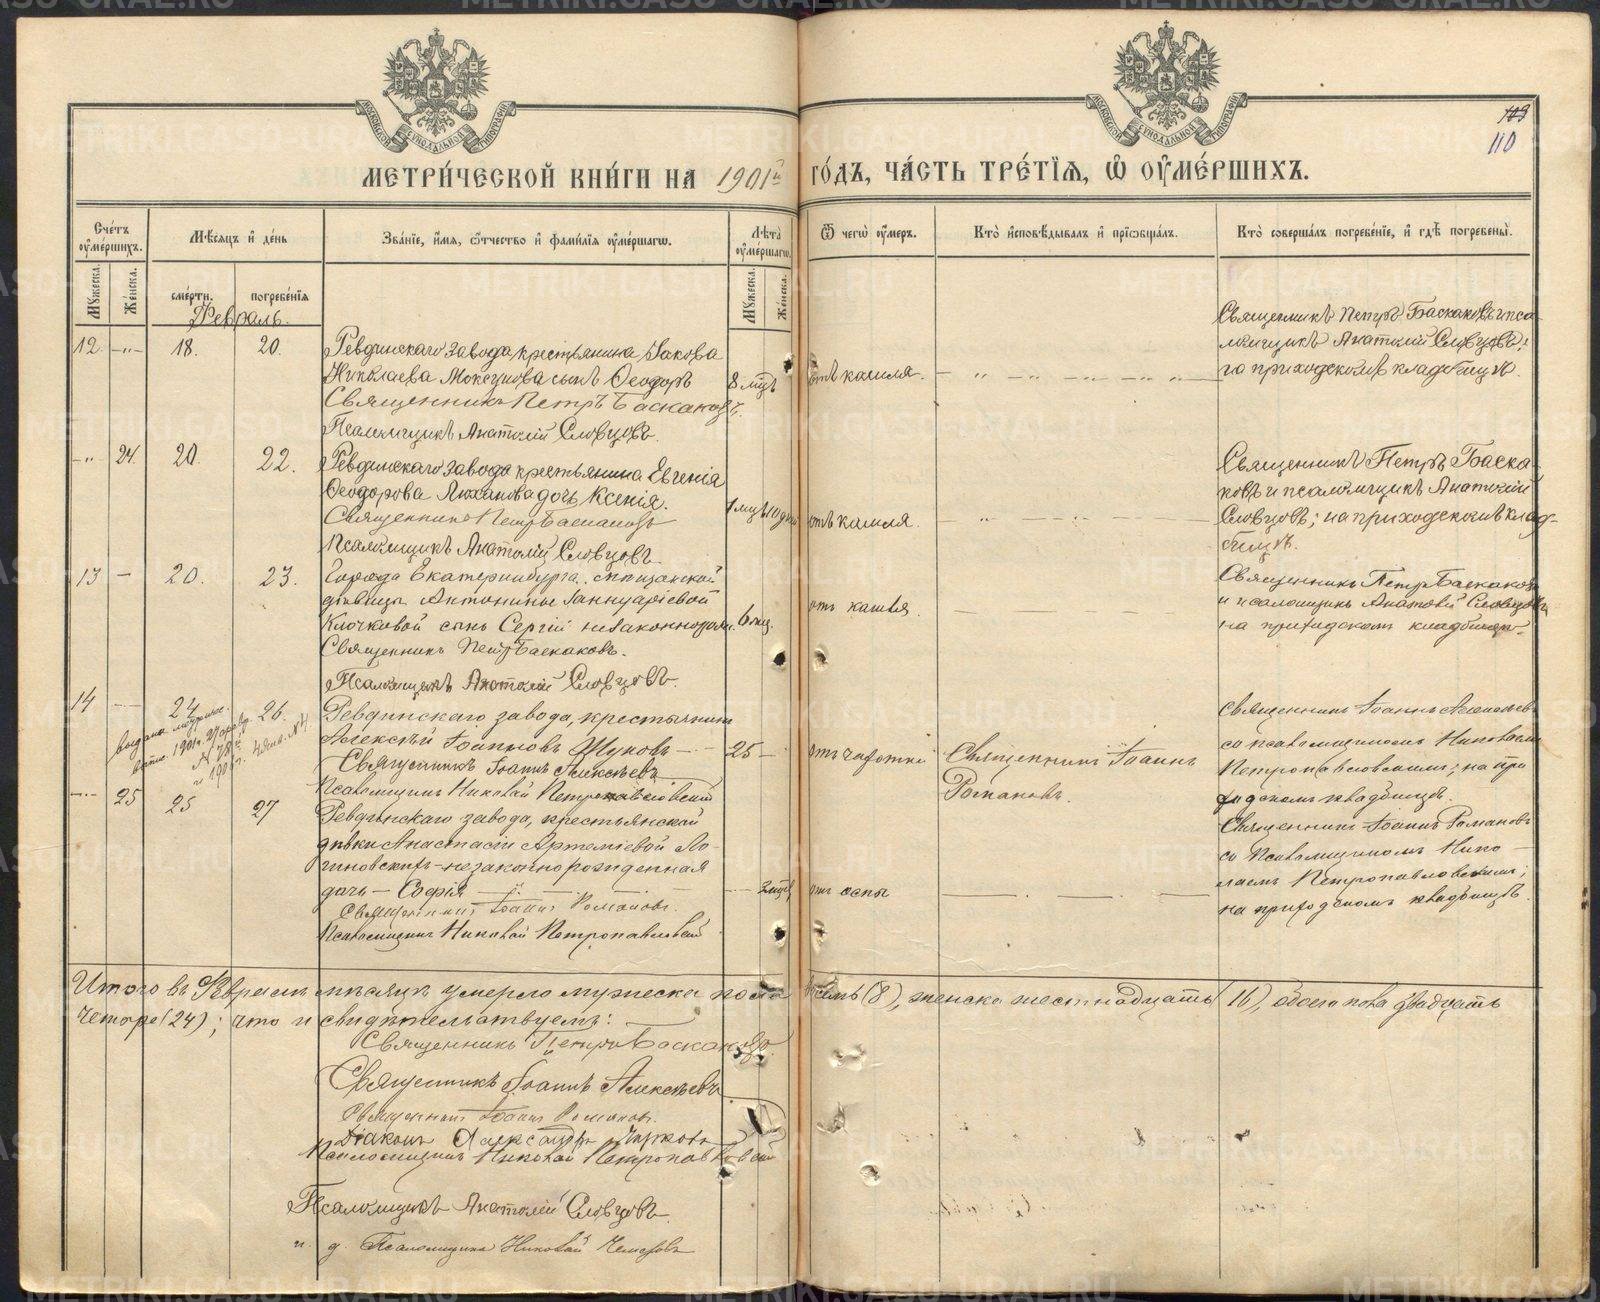 МОСКОВСКОЙ СѴНОДАЛЬНОЙ ТИПОГРАФІИ
МОСКОВСКОЙ СѴНОДАЛЬНОЙ ТИПОГРАФІИ
110
МЕТРИ́ЧЕСКОЙ КНИ́ГИ НА 1901й ГО́ДЪ, ЧА́СТЬ ТРЕ́ТІѦ, Ѡ ОУМЕ́РШИХЪ.
Сче́тъ оумершихъ.
Мѣсяцъ и де́нь
Зва́ніе, и́мя, ѻтчество и фами́лія оумершагѡ.
Лѣта оумершагѡ.
Ѿ чегѡ оумеръ.
Кто исповѣдывалъ и пріѡбщалъ.
Кто соверша́лъ погребе́ніе, и гдѣ погребены̀.
Мꙋжеска.
Же́нска.
сме́рти.
погребе́нія
Мꙋжеска.
Же́нска.
Февраль.
12. -„- 18. 20.
Ревдинскаго завода крестьянина Іакова
Николаева сынъ Ѳеодоръ
Священникъ Петръ Баскаковъ
Псаломщикъ Анатолій Словцовъ.
8 мцъ
отъ кашля.
Священникъ Петръ Баскаковъ и пса-
ломщикъ Анатолій Словцовъ;
на приходскомъ кладбищѣ.
-„- 24. 20. 22.
Ревдинскаго завода крестьянина Евгенія
Ѳеодорова дочь Ксенія.
Священникъ Петръ Баскаковъ
Псаломщикъ Анатолій Словцовъ.
1 мцъ 10 дней
отъ кашля.
Священникъ Петръ Баска-
ковъ и псаломщикъ Анатолій
Словцовъ; на приходскомъ клад-
бищѣ.
13 — 20. 23.
Города Екатеринбурга, мѣщанской
дѣвицы Антонины Іаннуаріевой
Клочковой сынъ Сергій незаконнорожд.
Священникъ Петръ Баскаковъ.
Псаломщикъ Анатолій Словцовъ.
6 мц.
отъ кашля.
Священникъ Петръ Баскаковъ
и псаломщикъ Анатолій Словцовъ
на приходскомъ кладбищѣ.
14 — 24 26.
1901г.
Ревдинскаго завода, крестьянинъ
Алексѣй Іоанновъ Жуковъ —
Священникъ Іоаннъ Алексѣевъ
Псаломщикъ Николай Петропавловскій
25 —
отъ чахотки
Священникъ Іоаннъ
Романовъ.
Священникъ Іоаннъ Алексѣевъ
со псаломщикомъ Николаемъ
Петропавловскимъ; на при
ходскомъ кладбищѣ.
—„— 25 25 27
Ревдинскаго завода, крестьянской
дѣвки Анастасіи Артеміевой Ло-
гиновскихъ — незаконнорожденная
дочь — Софія —
Священникъ Іоаннъ Романовъ.
Псаломщикъ Николай Петропавловскій
2 мцъ
отъ оспы
Священникъ Іоаннъ Романовъ
со Псаломщикомъ Нико-
лаемъ Петропавловскимъ;
на приходскомъ кладбищѣ.
Итого въ Февралѣ мѣсяцѣ умерло мужеска пола восемь (8), женска шестнадцать (16), обоего пола двадцать
четыре (24); что и свидѣтельствуемъ:
Священникъ Петръ Баскаковъ.
Священникъ Іоаннъ Алексѣевъ
Священникъ Іоаннъ Романовъ.
Діаконъ Александръ
Псаломщикъ Николай Петропавловскій
Псаломщикъ Анатолій Словцовъ.
и. д. Псаломщика Николай